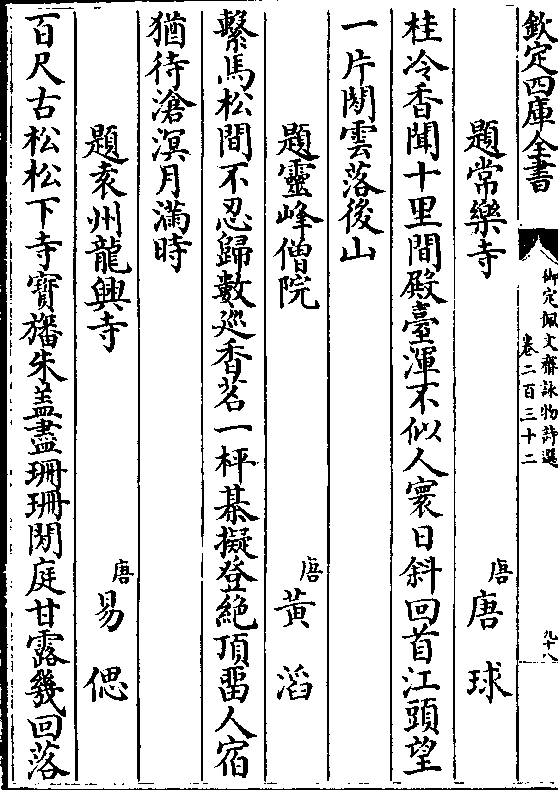 欽定四庫全書
御定佩文齋詠物詩選
卷二百三十二
九十八
題常樂寺
唐 唐球
桂冷香聞十里間殿臺渾不似人寰日斜回首江頭望
一片閒雲落後山
題靈峰僧院
唐 黃滔
繫馬松間不忍歸數廵香茗一枰棊擬登絶頂畱人宿
猶待滄溟月滿時
題袁州龍興寺
唐 易偲
百尺古松松下寺寳旛朱盖盡珊珊閒庭甘露幾回落